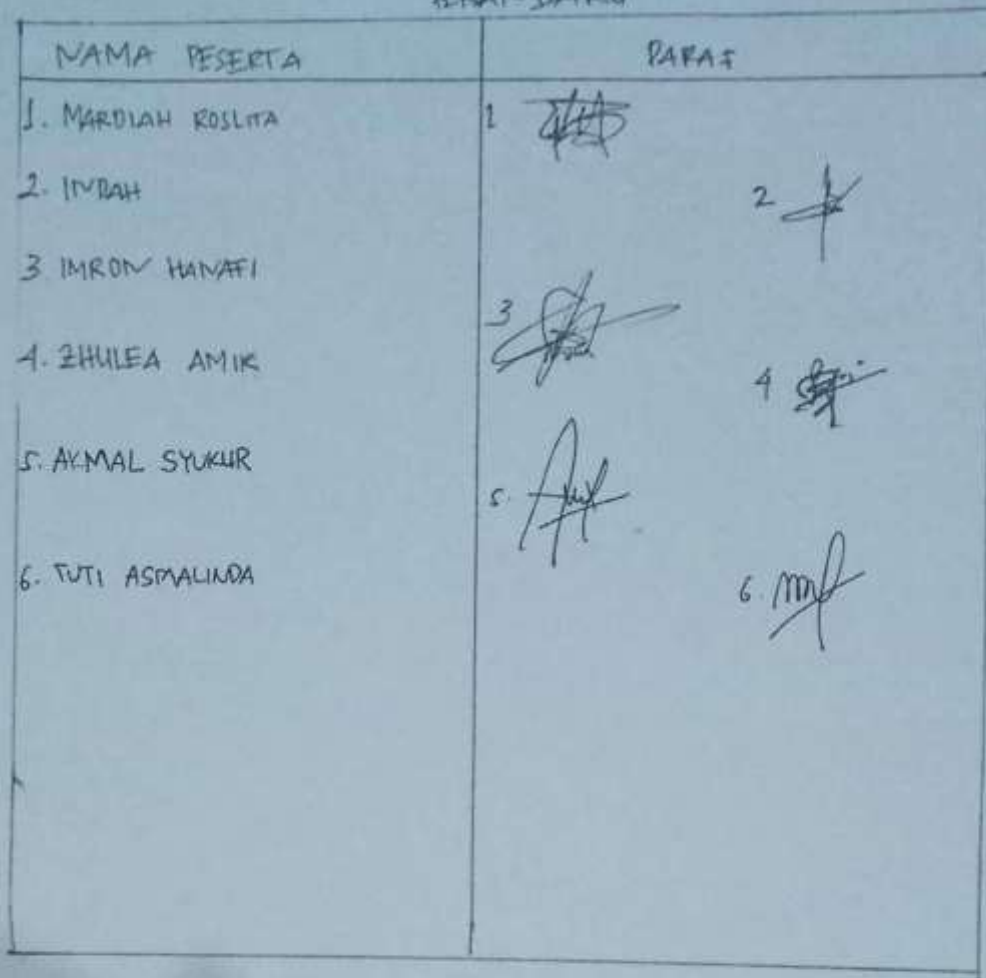 NAMA PESERTA PARAF
1. MARDIAH ROSLITA 1
2. INDAH 2
3 IMRON HANAFI 3
4. ZHULEA AMIK 4
5. AKMAL SYUKUR 5.
6. TUTI ASMALINDA 6.